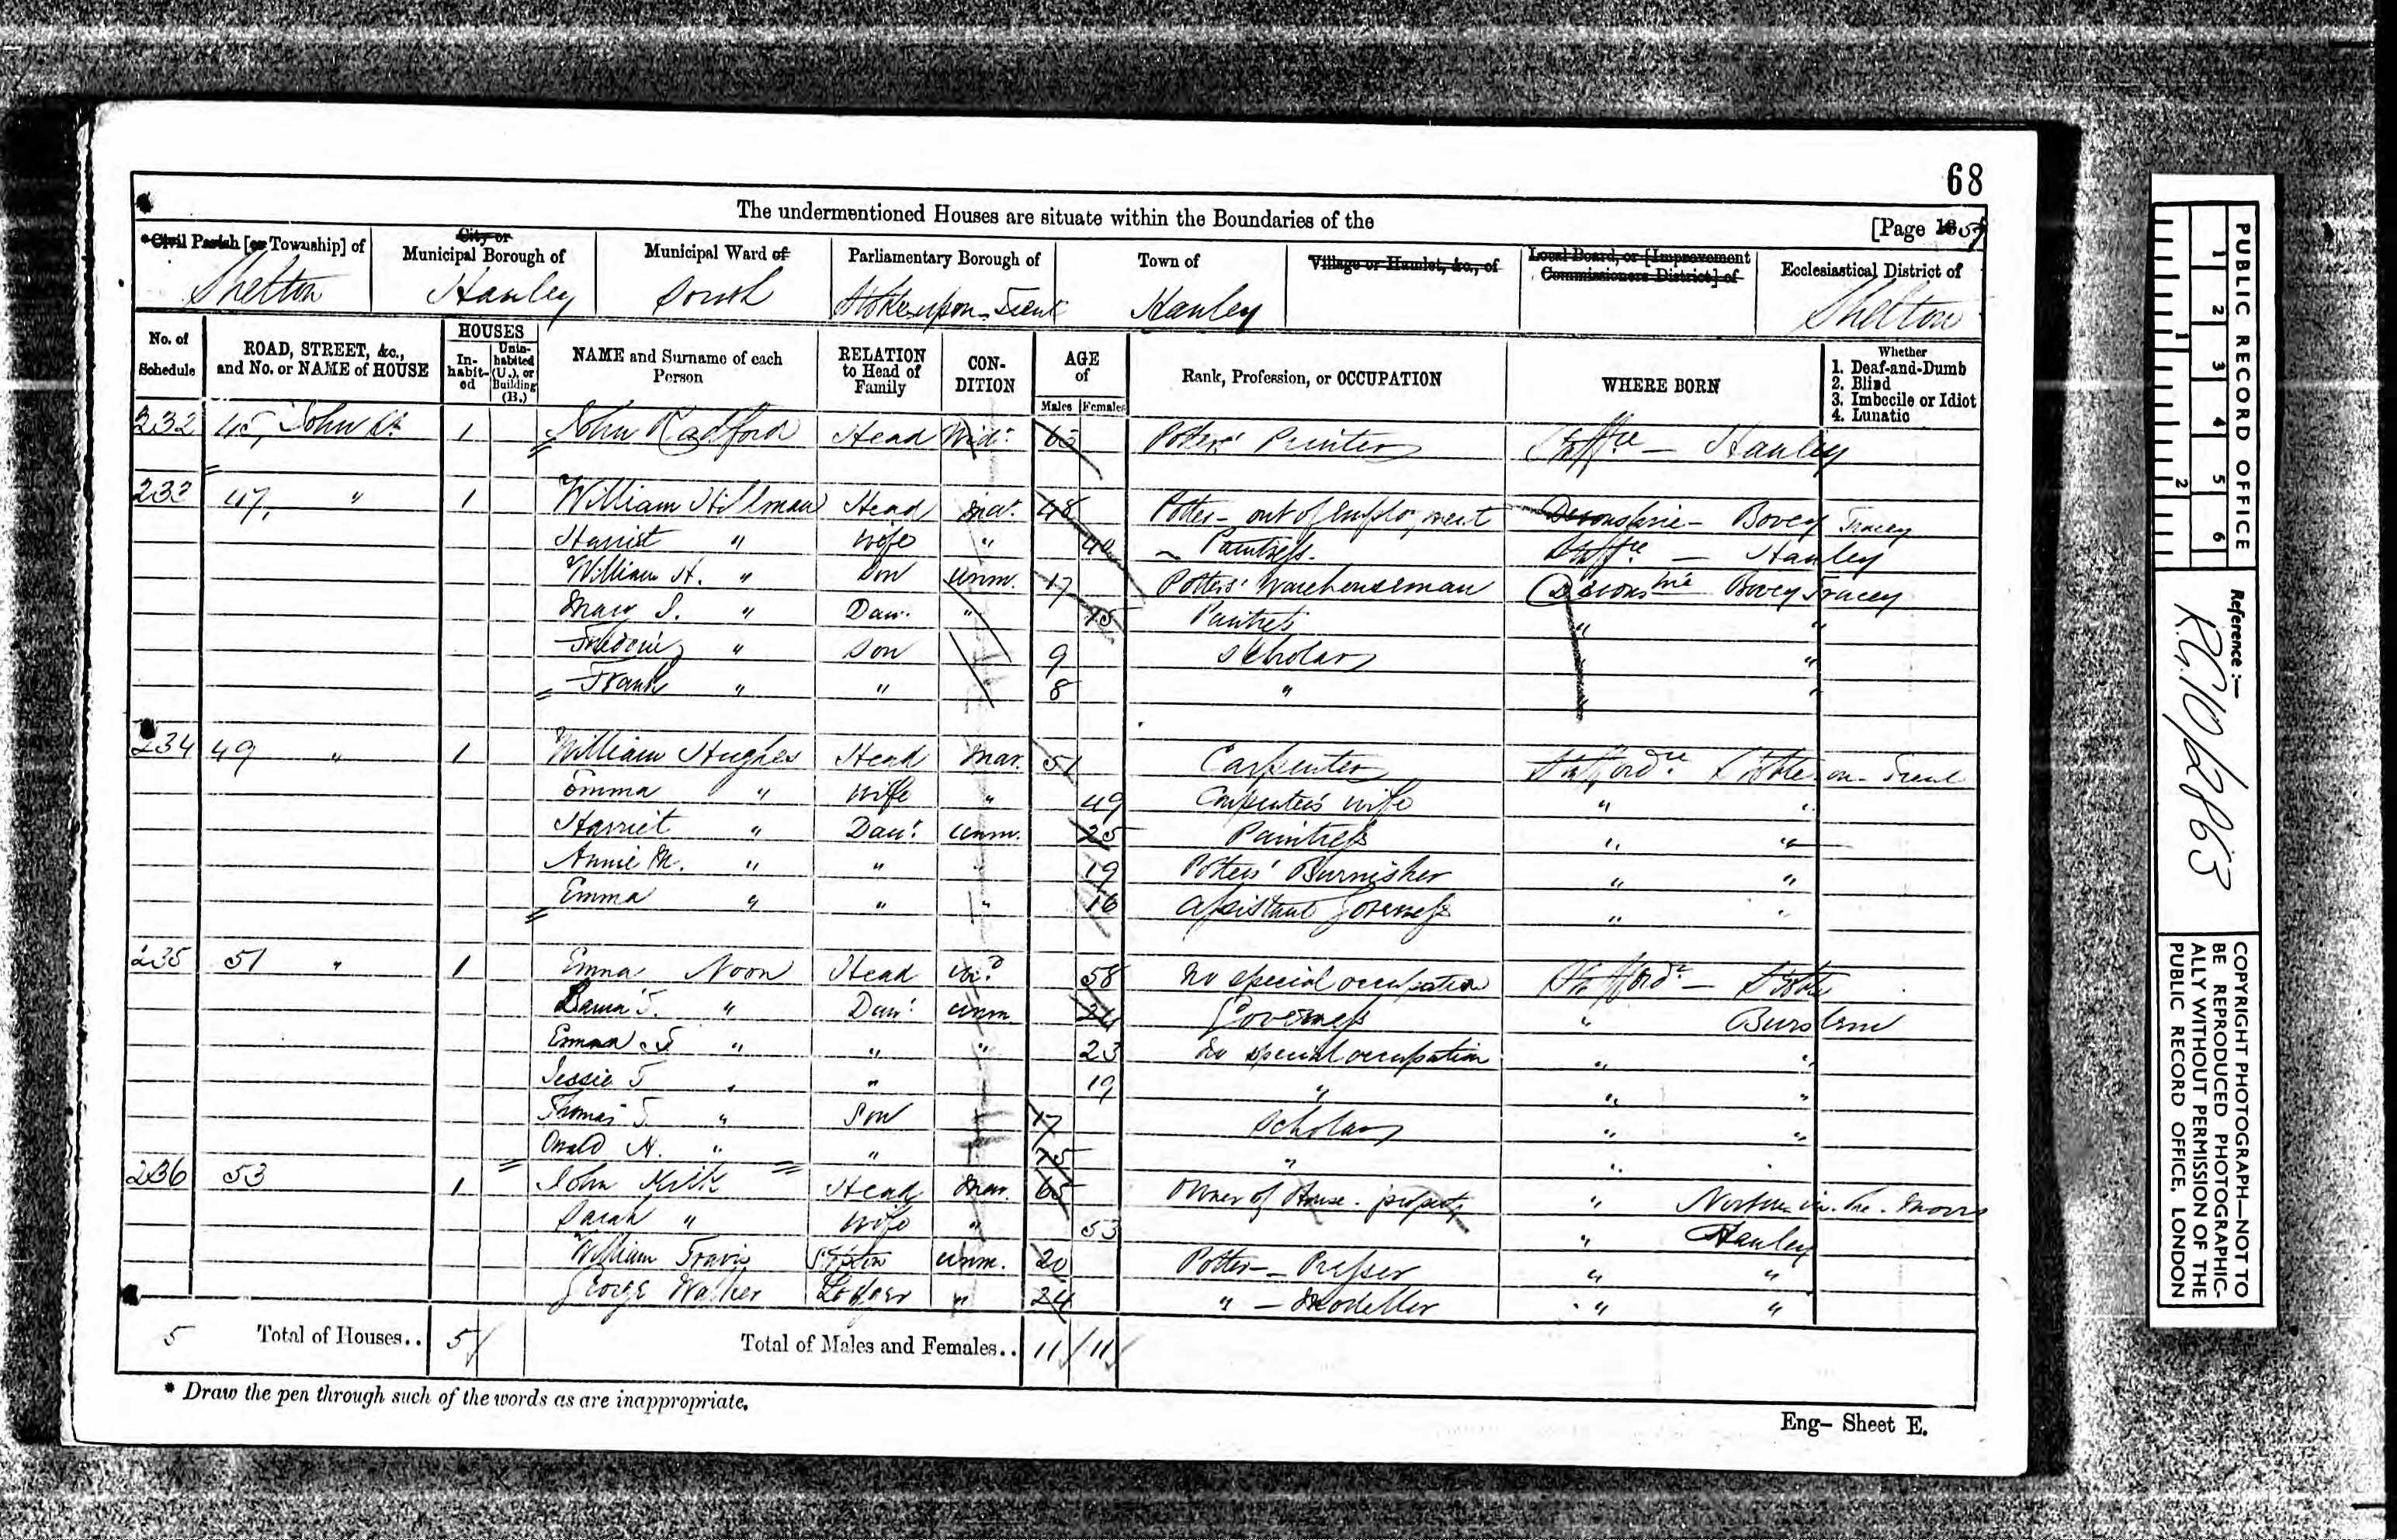 68
The undermentioned Houses are situate within the Boundaries of the [Page
*Civil Parish [or Township] of City or Municipal Borough of Municipal Ward of Parliamentary Borough of Town of Village or Hamlet, &c., of Local Board, or [Improvement Commissioners District] of Ecclesiastical District of
Shelton Hanley South Stoke-upon-Trent Hanley Shelton
No. of Schedule ROAD, STREET, &c., and No. or NAME of HOUSE HOUSES In-habit-ed Unin-habited (U.), or Building (B.) NAME and Surname of each Person RELATION to Head of Family CON-DITION AGE of Males Females Rank, Profession, or OCCUPATION WHERE BORN Whether 1. Deaf-and-Dumb 2. Blind 3. Imbecile or Idiot 4. Lunatic
232 45, John St 1 John Radford Head Widr 63 Potters' Printer Staffre — Hanley
233 47, " 1 William Hillman Head Mar. 48 Potter - out of employment Devonshire - Bovey Tracey
Harriet " Wife " Paintress Staffre — Hanley
William H. " Son Unm. 17 Potters' Warehouseman Devonshire Bovey Tracey
Mary S. " Daur. " 15 Paintress " "
Frederic " Son 9 Scholar "
Frank " " 8 " "
234 49 " 1 William Hughes Head Mar. 51 Carpenter Staffordre Stoke on-Trent
Emma " Wife " 49 Carpenter's wife " "
Harriet " Daur. Unm. 25 Paintress " "
Annie M. " " " 19 Potters' Burnisher " "
Emma " " " 16 Assistant Governess " "
235 51 " 1 Emma Noon Head Wid 58 No special occupation Staffordre — Stoke
T. " Daur. Unm 24 Governess " Burslem
Emma T " " " 23 No special occupation " "
Jessie T " " 19 " " "
Thomas T. " Son 17 Scholar " "
A. " " 15 " " "
236 53 1 John Head Mar. 65 Owner of House-property " Norton-in-the-Moors
Sarah " Wife " 53 " Hanley
William Travis Unm. 20 Potter - Presser " "
George Walker Lodger " 24 " - Modeller " "
5 Total of Houses.. 5 Total of Males and Females.. 11 11
* Draw the pen through such of the words as are inappropriate.
Eng— Sheet E.
PUBLIC RECORD OFFICE
1 2 3 4 5 6
1 2
Reference:—
R.G.10/2863
COPYRIGHT PHOTOGRAPH—NOT TO
BE REPRODUCED PHOTOGRAPHIC-
ALLY WITHOUT PERMISSION OF THE
PUBLIC RECORD OFFICE, LONDON